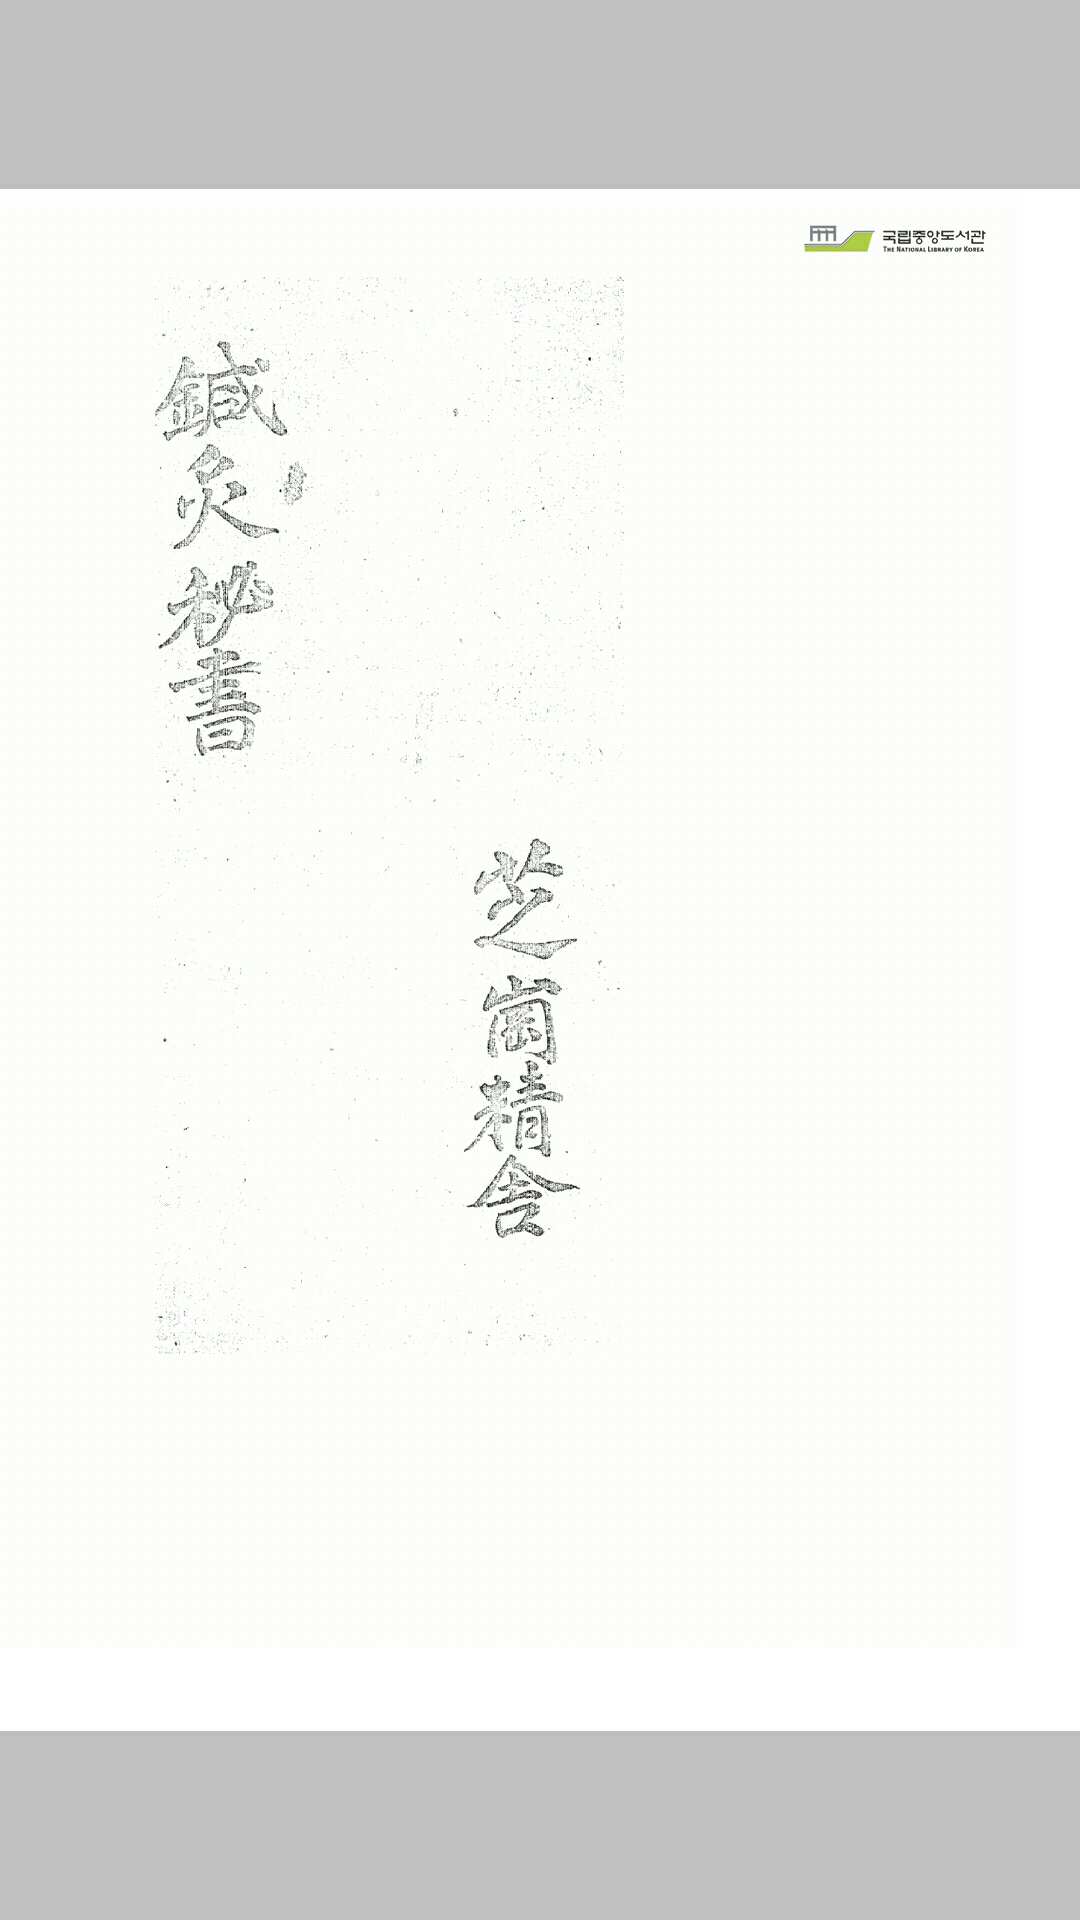 국립중앙도서관
THE NATIONAL LIBRARY OF KOREA
鍼灸秘書
芝崗精舍